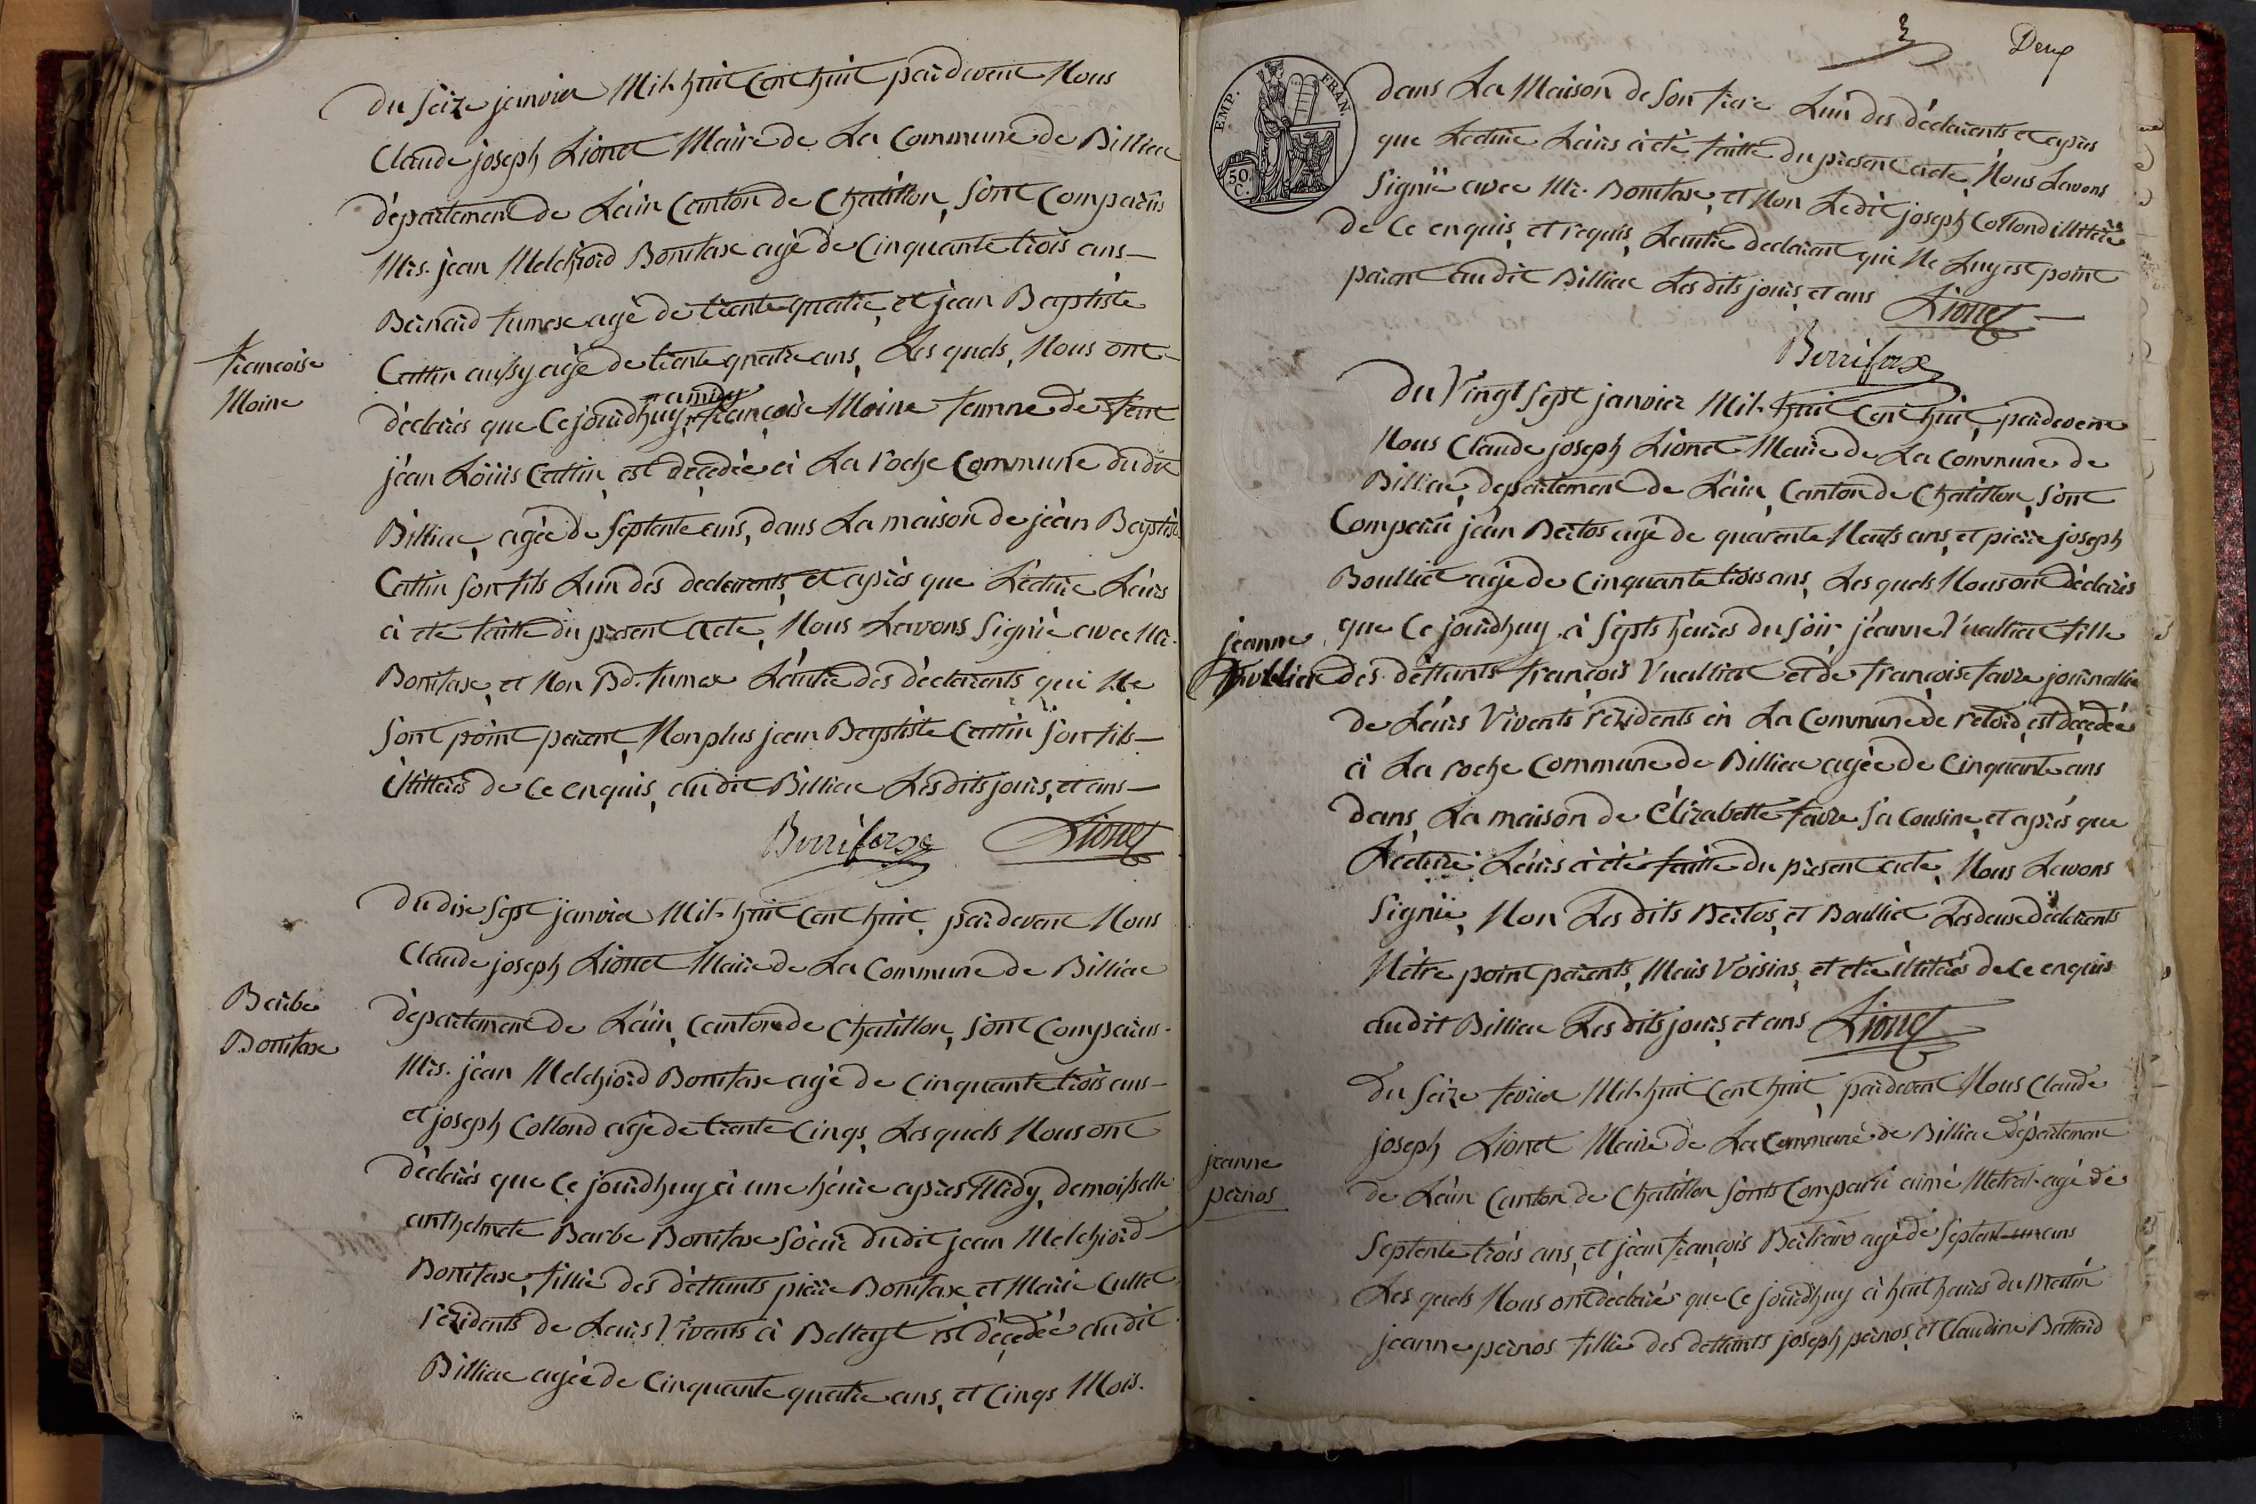 du seize janvier Mil huit Cent huit pardevent Nous
Claude joseph Lionet Maire de La Commune de Billiac
département de L'ain Canton de Chatillon, sont Comparûs
Mrs. jean Melchiord Bonifaxe agé de Cinquante trois ans—
Bernard fumexe agé de trente quatre, et jean Baptiste
Françoise
Cattin aussy agé de trente quatre ans, Les quels, Nous ont
Moine
déclarés que Ce jourdhuy, a midy françoise Moine famne de feut
jéan Loüis Cattin, est deçedée à La roche Commune dudit
Billiac, agée de septente ans, dans La maison de jéan Baptiste
Cattin son fils L'un des declarents, et après que Lecture Leurs
à été faitte du present acte, Nous Lavons Signié avec Mr.
Bonifaxe, et Non Bd. fumex Léautre des déclarents qui Ne
sont point parent, Non plus jean Baptiste Cattin son fils—
illitteres de Ce enquis, audit Billiac Lesdits jours, et ans—
Bonifaxe Lionet
du dix sept janvier Mil huit Cent huit, pardevent Nous
Claude joseph Lionet Maire de La Commune de Billiac
Barbe
département de L'ain, Canton de Chatillon, sont Comparus
Bonifaxe
Mrs. jéan Melchiord Bonifaxe agé de Cinquante trois ans—
et joseph Collond agé de trente Cinqs, Les quels Nous ont
déclarés que Ce jourdhuy à une héure après Midy, demoiselle
anthelmete Barbe Bonifaxe Soeur dudit jean Melchiord
Bonifaxe, fillie des déffunts piere Bonifaxe et Marie Cullet
résidents de Leurs Vivents à Belleyt est décedée audit
Billiac agée de Cinquante quatre ans, et Cinqs Mois.
2 Deux
EMP. FRAN.
50. C.
dans La Maison de Son frere L'un des déclarents et après
que Lecture Leurs à été faitte du present acte, Nous Lavons
Signié avec Mr. Bonifaxe, et Non Ledit joseph Collond illitere
de Ce enquis, et requis, Leautre declarant qui Ne Luy est point
parent audit Billiac Lesdits jours, et ans Lionet
Bonifaxe
du Vingt Sept janvier Mil huit Cent huit, pardevent
Nous Claude joseph Lionet Maire de La Commune de
Billiac, département de L'ain, Canton de Chatillon, sont
Comparu jéan Bertos agé de quarente Neufs ans, et pierre joseph
Boulliet agé de Cinquante trois ans, Les quels Nous ont déclarés
jeanne
que Ce jourdhuy à septs héures du soir jéanne Vuallier fille
Vullier
des déffunts françois Vuallier et de françoise favre journallie
de Leurs Vivents résidents en La Commune de retord, est décedée
à La roche Commune de Billiac agée de Cinquante ans
dans La maison de Élizabette favre sa Cousine, et après que
Lecture Leurs à été faitte du present acte, Nous Lavons
Signié, Non Lesdits Bertos, et Boulliet Les deux déclarents
N'être point parents, Mais Voisins, et été illiteres de Ce enquis
audit Billiac Lesdits jours, et ans Lionet
du Seize fevrier Mil huit Cent huit, pardevent Nous Claude
joseph Lionet Maire de La Commune de Billiac département
jeanne
pernos
de L'ain Canton de Chatillon sonts Comparu aimé Metral agé de
Septente trois ans, et jéan françois Bertrand agé de septent un ans
Les quels Nous ont declarés que Ce jourdhuy à huit heures du Matin
jeanne pernos fillie des deffunts joseph pernos, et Claudine Battard